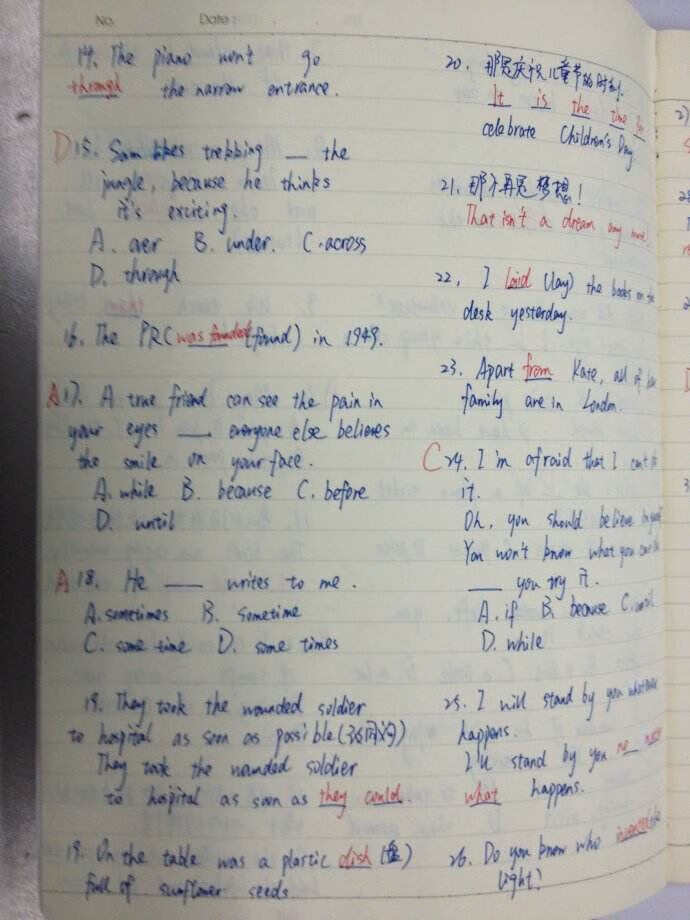 No.
Date
14. The piano won't go
through the narrow entrance.
D 15. Sam likes trekking __ the
jungle, because he thinks
it's exciting.
A. over B. under. C. across
D. through
16. The PRC was founded (found) in 1949.
A 17. A true friend can see the pain in
your eyes ___ everyone else believes
the smile on your face.
A. while B. because C. before
D. until
A 18. He ___ writes to me.
A. sometimes B. sometime
C. some time D. some times
19. They took the wounded soldier
to hospital as soon as possible (改同义句)
They took the wounded soldier
to hospital as soon as they could.
19. On the table was a plastic dish (盘)
full of sunflower seeds.
20. 那是庆祝儿童节的时刻.
It is the time to
celebrate Children's Day
21. 那不再是梦想!
That isn't a dream any more!
22. I laid (lay) the books on the
desk yesterday.
23. Apart from Kate, all of her
family are in London.
C 24. I'm afraid that I can't do
it.
Oh, you should believe
You won't know what you can do
___ you try it.
A. if B. because C. until
D. while
25. I will stand by you whatever
happens.
I'll stand by you no matter
what happens.
26. Do you know who invented the
light?